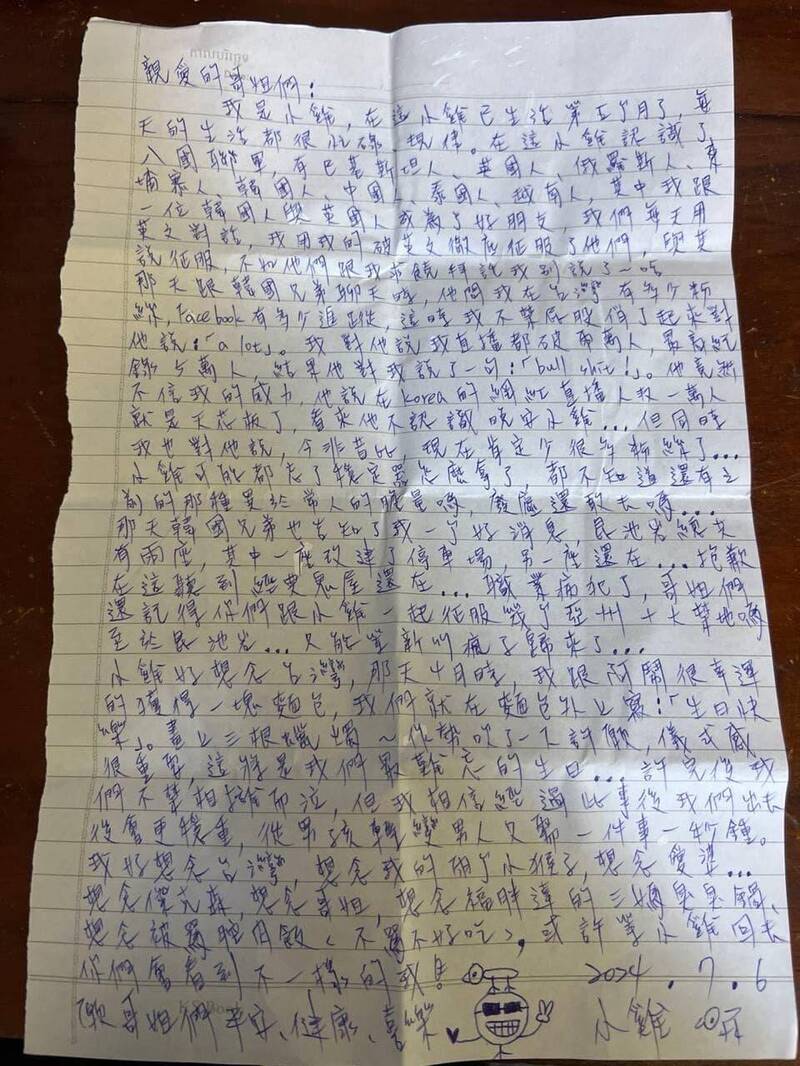 親愛的哥姐們：
我是小雞，在這小雞已生活第五個月了，每
天的生活都很忙碌、規律。在這小雞認識了
八國聯軍，有巴基斯坦人、英國人、俄羅斯人、柬
埔寨人、韓國人、中國人、泰國人、越南人，其中我跟
一位韓國人與英國人成為了好朋友，我們每天用
英文對話，我用我的破英文徹底征服了他們，與其
說征服，不如他們跟我求饒拜託我別說了～哈
那天跟韓國兄弟聊天時，他問我在台灣有多少粉
絲，Facebook有多少追蹤，這時我不禁屁股伯了起來對
他說：「a lot」。我對他說我直播都破兩萬人，最高紀
錄5萬人，結果他對我說了一句：「bull shit！」。他竟然
不信我的威力，他說在Korea的網紅直播人數一萬人
就是天花板了，看來他不認識晚安小雞...但同時
我也對他說，今非昔比，現在肯定少很多粉絲了...
小雞可能都忘了穩定器怎麼拿了，都不知道還有之
前的那種異於常人的膽量嗎，廢墟還敢去嗎...
那天韓國兄弟也告知了我一個好消息，昆池岩總共
有兩座，其中一座改建了停車場，另一座還在...抱歉
在這聽到經典鬼屋還在...職業病犯了，哥姐們
還記得你們跟小雞一起征服幾個亞州十大禁地嗎
至於昆池岩...只能等新叫瘋子歸來了...
小雞好想念台灣，那天4月時，我跟阿鬧很幸運
的獲得一塊麵包，我們就在麵包外上寫：「生日快
樂」。畫上三根蠟燭～作勢吹了一下許願，儀式感
很重要，這將是我們最難忘的生日...許完後我
們不禁相擁而泣，但我相信經過此事後我們出去
後會更穩重，從男孩轉變男人只需一件事一秒鐘。
我好想念台灣，想念我的兩個小猴子，想念雙準...
想念傑克森，想念哥姐，想念福胖達的三媽臭臭鍋、
想念被罵腔伯飯<不罵不好吃>，或許等小雞回去
你們會看到不一樣的我！ 2024.7.6
願哥姐們平安、健康、喜樂 小雞